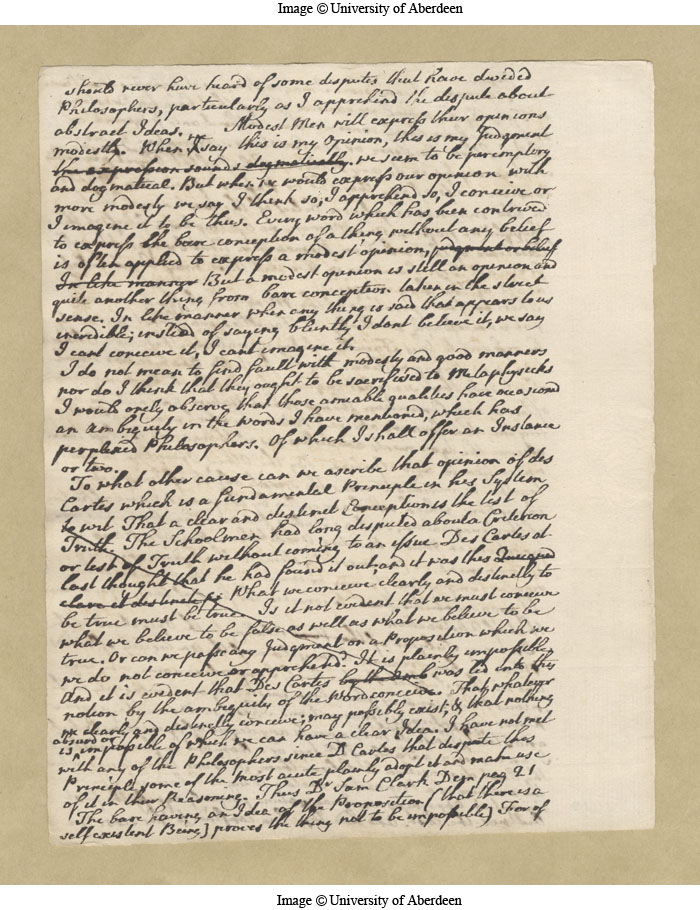 Image © University of Aberdeen
should never have heard of some disputes that have divided
Philosophers, particularly as I apprehend the dispute about
abstract Ideas. Modest Men will express their opinions
modestly. When we say this is my Opinion, this is my Judgment
the expression sounds dogmatically, we seem to be peremptory
and dogmatical. But when we would express our opinion with
more modesty we say I think so, I apprehend so, I conceive or
I imagine it to be thus. Every word which has been contrived
to express the bare conception of a thing without any belief
is often applied to express a modest opinion, judgment or belief
In like manner But a modest opinion is still an opinion and
quite another thing from bare conception taken in the strict
sense. In like manner when any thing is said that appears to us
incredible; instead of saying bluntly I dont believe it, we say
I cant conceive it, I cant imagine it.
I do not mean to find fault with modesty and good manners
nor do I think that they ought to be sacrificed to Metaphysicks
I would onely observe that those amiable qualities have occasiond
an ambiguity in the words I have mentioned, which has
perplexed Philosophers. Of which I shall offer an Instance
or two.
To what other cause can we ascribe that opinion of des
Cartes which is a fundamental Principle in his System
to wit That a clear and distinct Conception is the test of
Truth. The Schoolmen had long disputed about a Criterion
or test of Truth without coming to an issue Des Cartes at
last thought that he had found it out, and it was this
clare et distincte What we conceive clearly and distinctly to
be true must be true. Is it not evident that we must conceive
what we believe to be false as well as what we believe to be
true. Or can we pass any Judgment on a Proposition which we
we do not conceive or apprehend. It is plainly impossible,
And it is evident that Des Cartes was led into this
notion by the ambiguity of the Word conceive. That whatever
we clearly and distinctly conceive, may possibly exist; & that nothing
absurd or
is impossible of which we can have a clear Idea. I have not met
with any of the Philosophers since D Cartes that dispute this
Principle, some of the most acute plainly adopt it and make use
of it in their Reasoning. Thus Dr Sam Clark Dem pag 21
The bare having an Idea of the Proposition (that there is a
self existent Being) proves the thing not to be impossible) For of
Image © University of Aberdeen